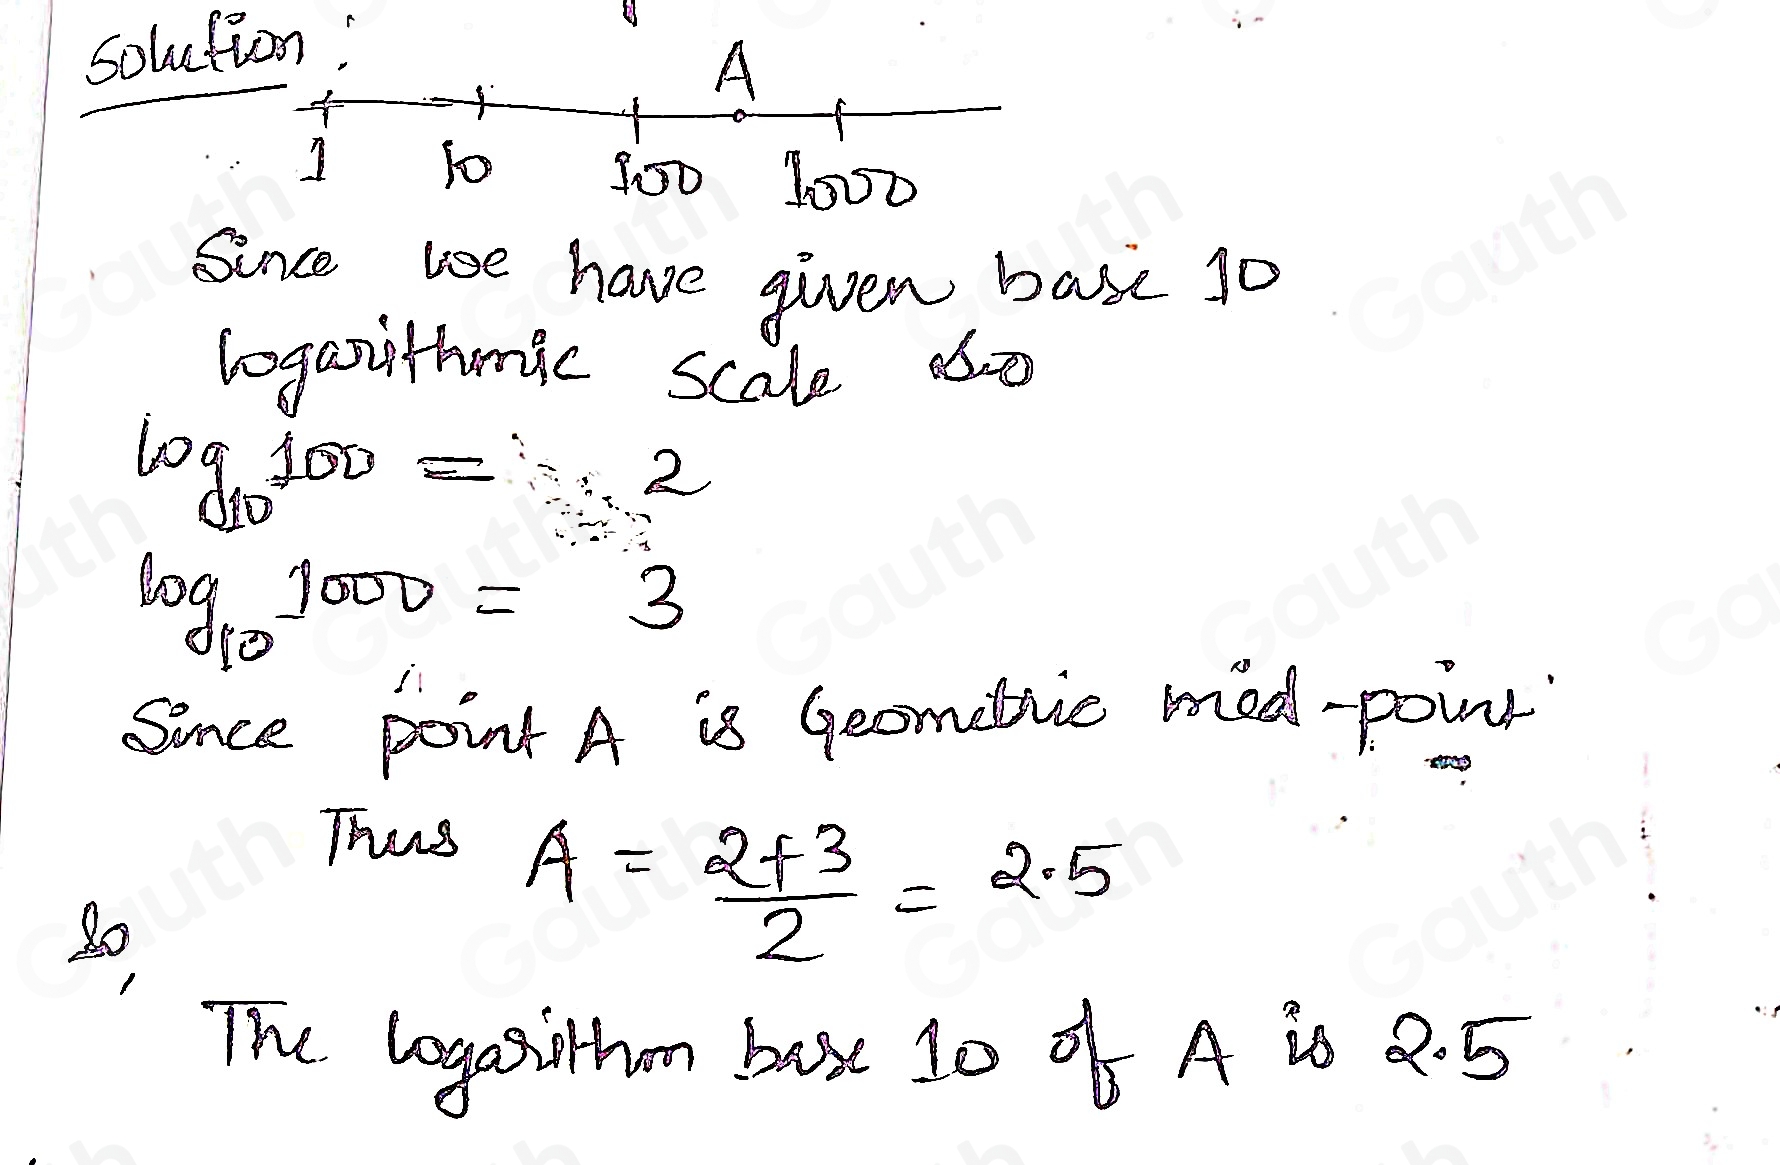 Solution :
A
1 10 100 1000
Since we have given base 10
logarithmic scale so
log₁₀ 100 = 2
log₁₀ 1000 = 3
Since point A is Geometric mid-point
Thus A = 2+3/2 = 2.5
So,
The logarithm base 10 of A is 2.5
Gauth